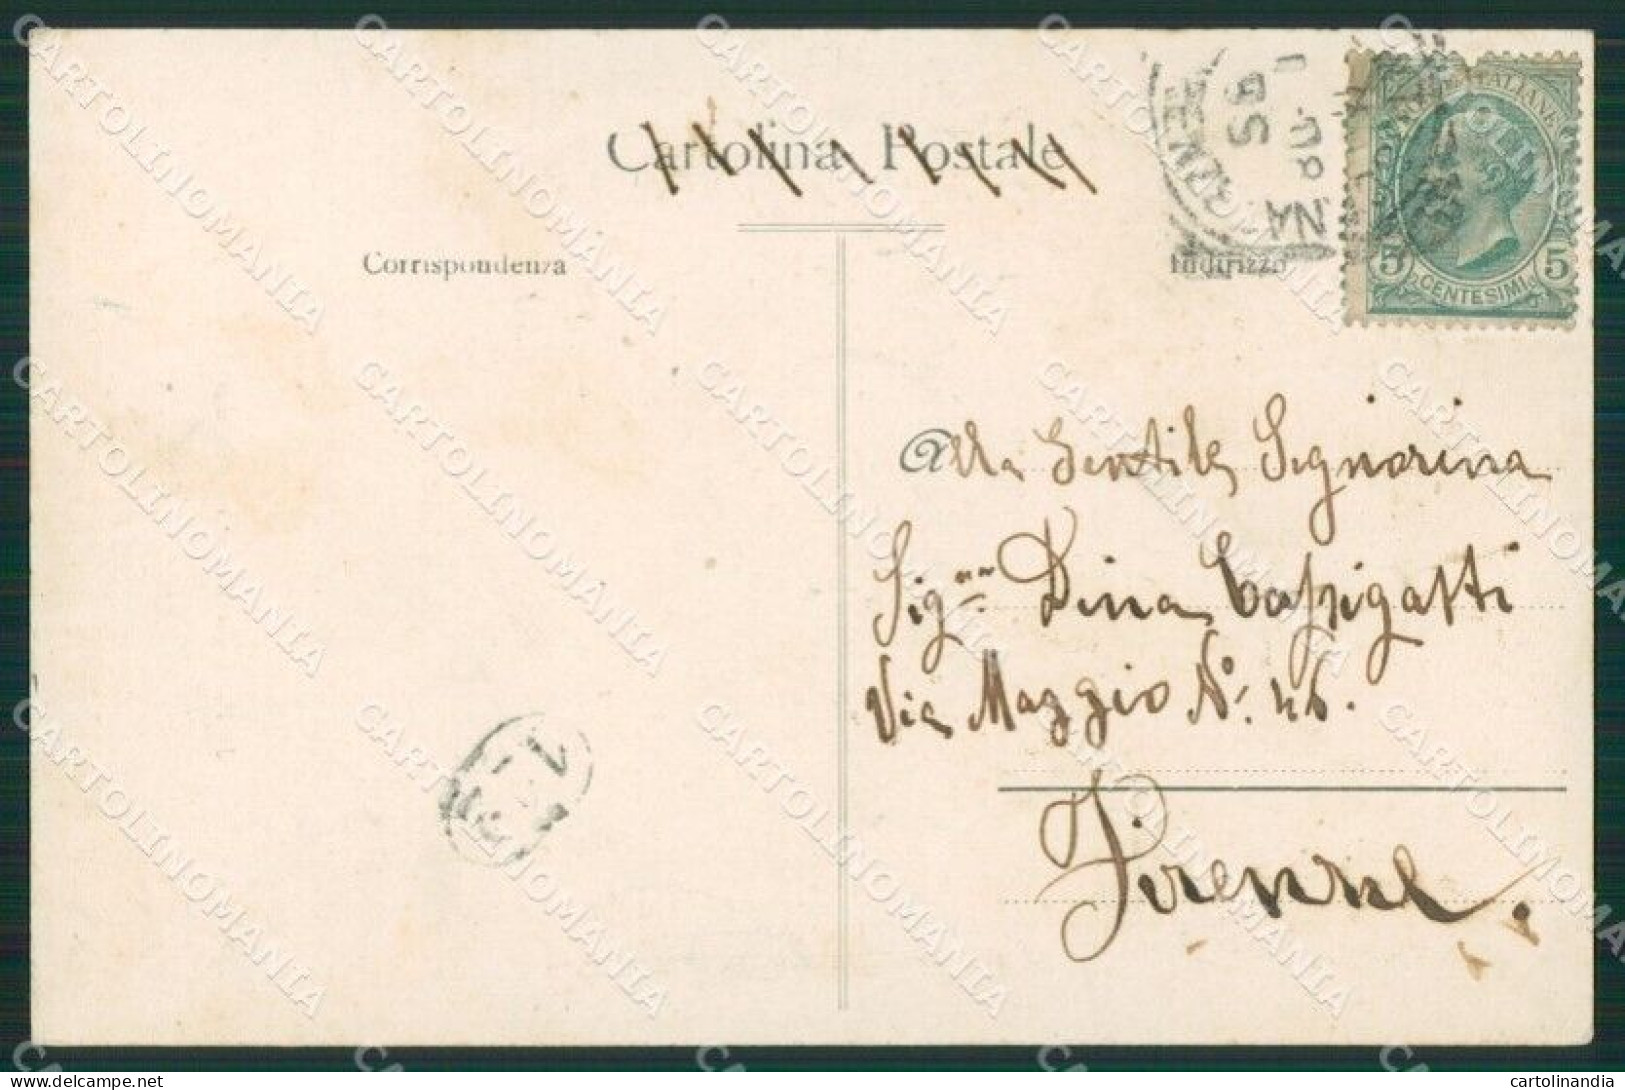 Cartolina Postale
Corrispondenza
Indirizzo
POSTE ITALIANE
5 CENTESIMI 5
Alla Gentile Signorina
Sig.na Dina
Via Maggio N.
Firenze.
CARTOLINOMANIA
delcampe.net
cartolinandia